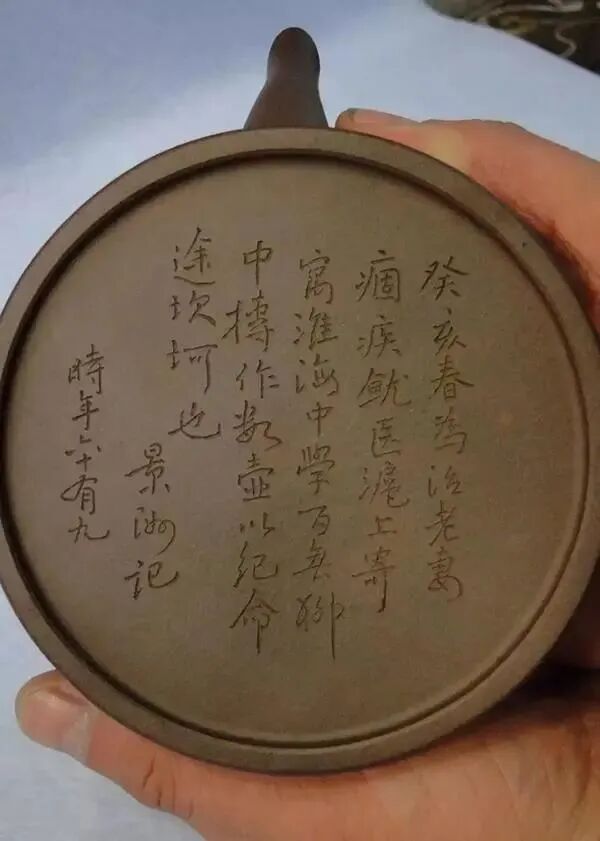 癸亥春為治老妻
痼疾就医滬上寄
寓淮海中学百無聊
中摶作数壺以纪命
途坎坷也
景洲记
時年六十有九